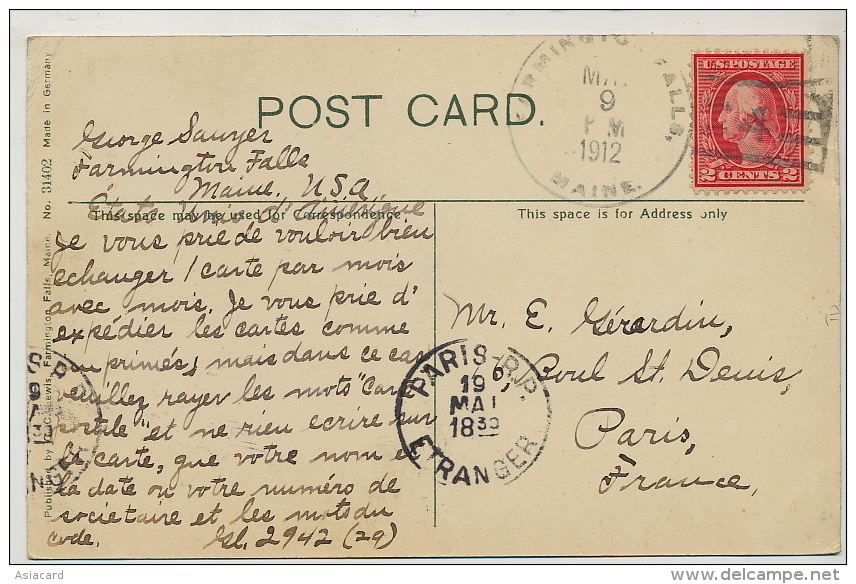 POST CARD.
George Sawyer
Farmington Falls
Maine, U.S.A.
États Unis d'Amérique
This space may be used for Correspondence.
This space is for Address only
Je vous prie de vouloir bien
echanger 1 carte par mois
avec mois. Je vous prie d'
expédier les cartes comme
primés, mais dans ce cas
veuillez rayer les mots "Carte
postale" et ne rieu ecrire sur
la carte, que votre nom et
la date ou votre numéro de
societaire et les mots du
code. 2942 (29)
Mr. E. Gérardin,
76, Boul St. Denis,
Paris,
France,
FARMINGTON FALLS,
MA
9
P M
1912
MAINE.
U.S. POSTAGE
2 CENTS 2
PARIS R.P.
19
MAI
18 30
ETRANGER
No. 31402 Made in Germany
Published by Lewis, Farmington Falls, Maine.
Asiacard
delcampe.net